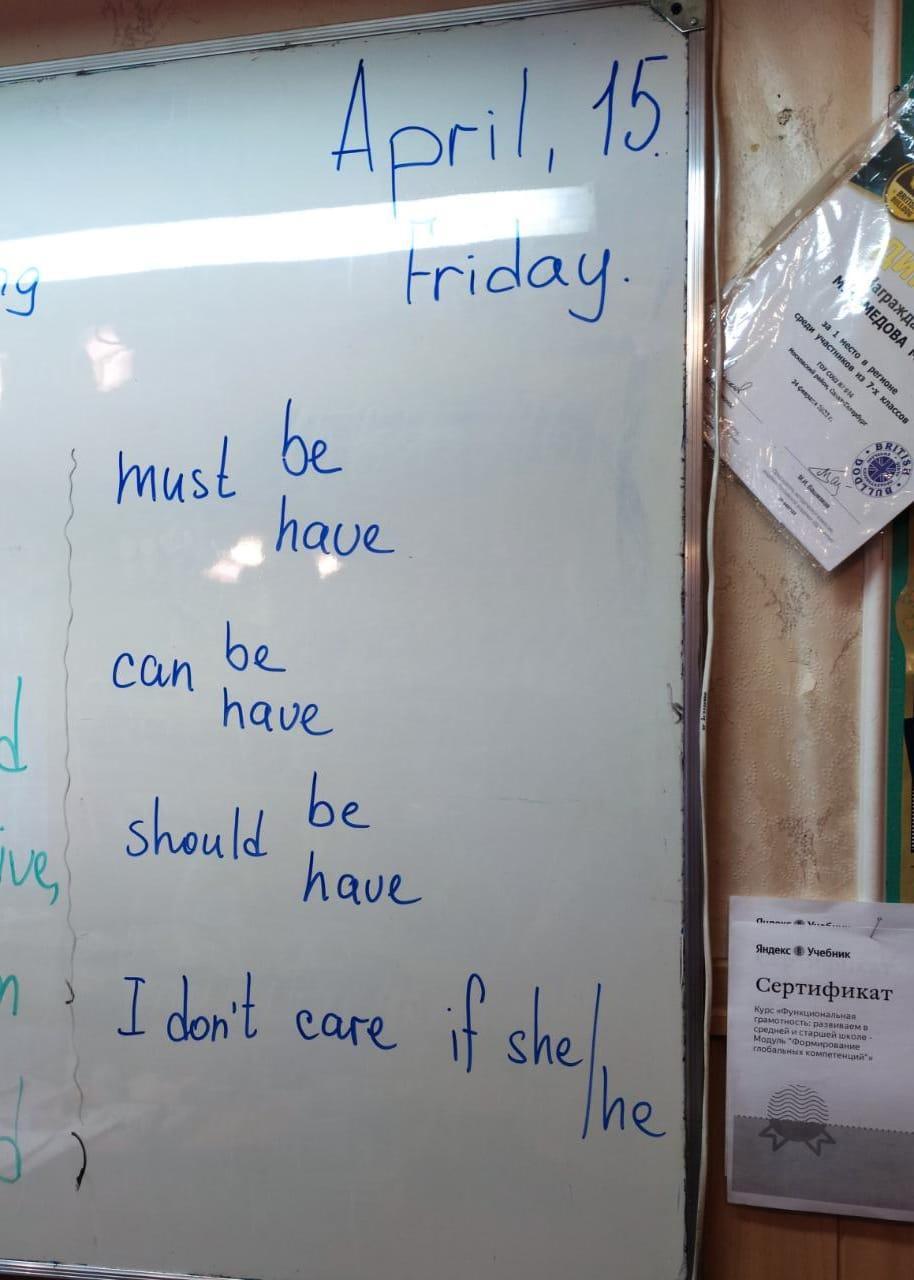 April, 15.
Friday.
must be
have
can be
have
should be
have
I don't care if she/
he
d
ive,
n
d
за 1 место в регионе
среди участников из 7-х классов
BRITISH
BULLDOG
Яндекс Учебник
Сертификат
Курс «Функциональная
грамотность: развиваем в
средней и старшей школе -
Модуль "Формирование
глобальных компетенций"»